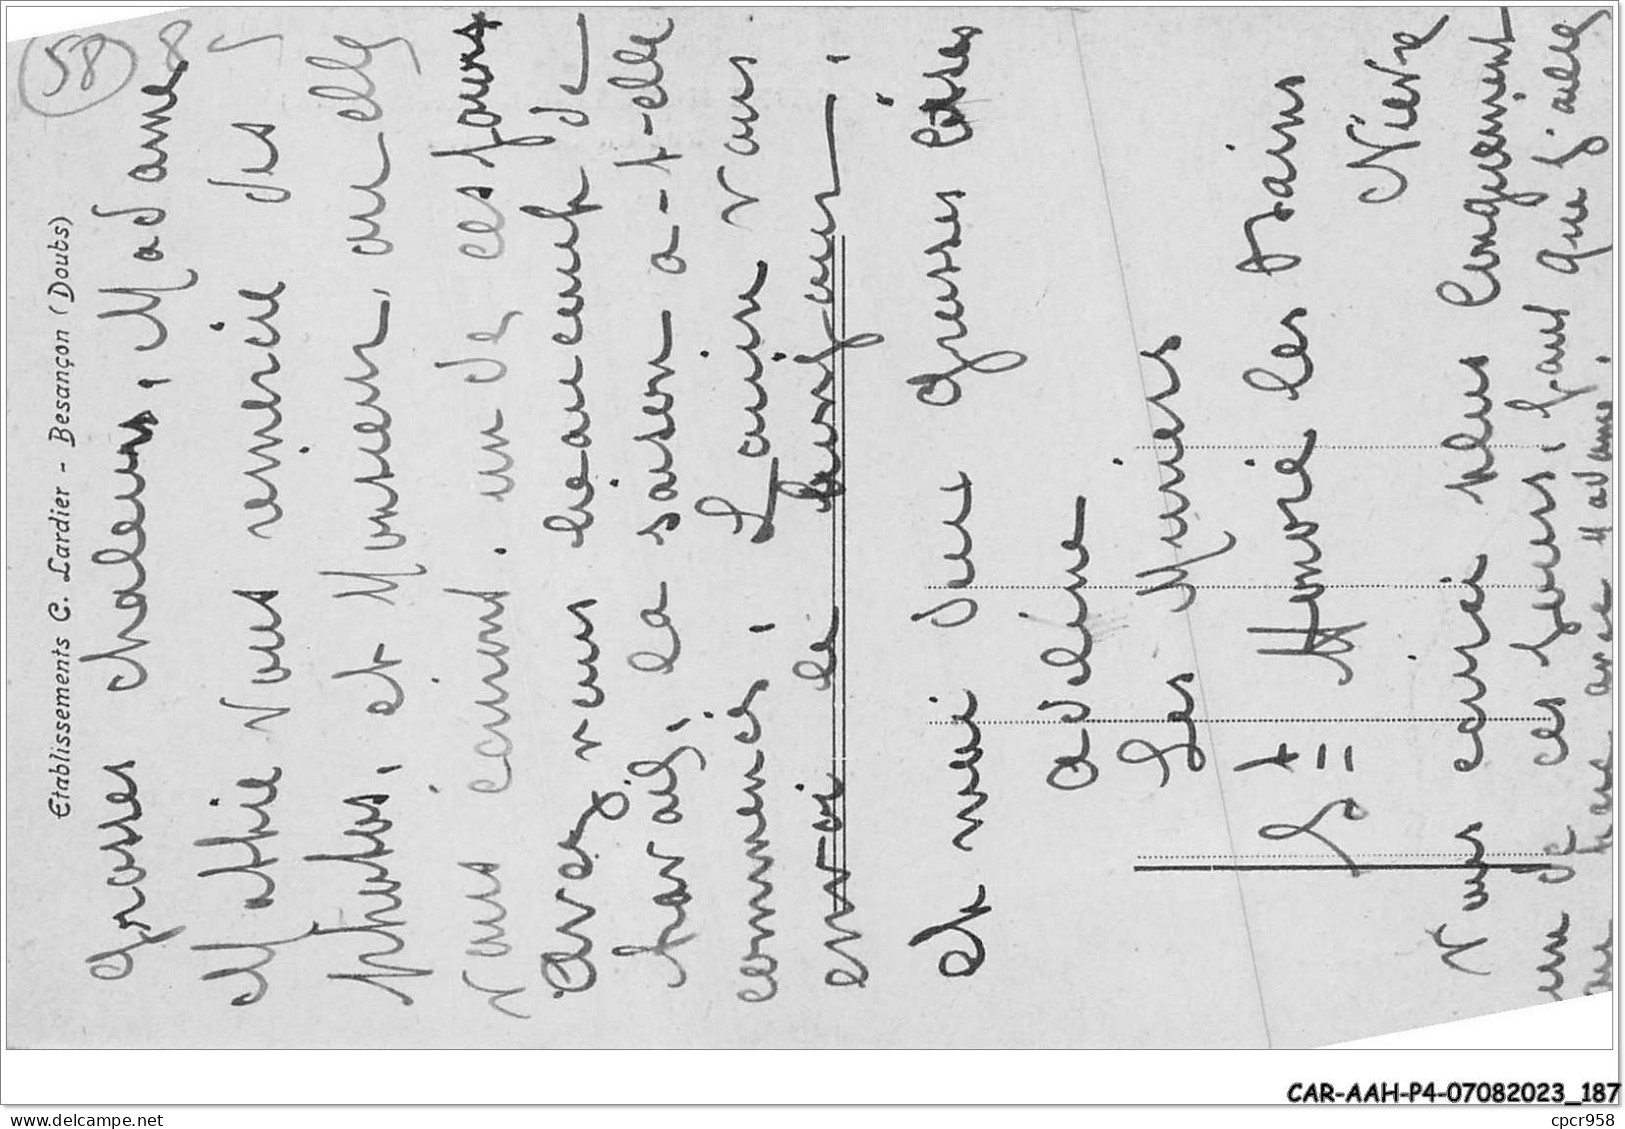 58
8
Etablissements C. Lardier - Besançon (Doubs)
Grosses chaleurs, Madame
Mathie vous remercie des
photos, et Monsieur, ou elle
Vous écriront. un de ces jours
avez vous beaucoup de
travail, la saison a-t-elle
commencés, Louis vous
envoi le bonjour,
et moi deux Grosses bises
Adeline
Les Muniers
St Honoré les Bains
Nièvre
Vous écrirai plus longuement
un de ces jours, faut que j'aille
avec Madame.
CAR-AAH-P4-07082023_187
delcampe.net
cpcr958